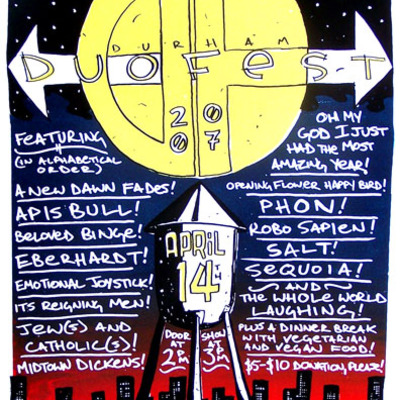 DURHAM
DUOFEST
2007
FEATURING
(IN ALPHABETICAL
ORDER)
A NEW DAWN FADES!
APIS BULL!
BELOVED BINGE!
EBERHARDT!
EMOTIONAL JOYSTICK!
IT'S REIGNING MEN!
JEW(S) AND
CATHOLIC(S)!
MIDTOWN DICKENS!
OH MY
GOD I JUST
HAD THE MOST
AMAZING YEAR!
OPENING FLOWER HAPPY BIRD!
PHON!
ROBO SAPIEN!
SALT!
SEQUOIA!
~AND~
THE WHOLE WORLD
LAUGHING!
PLUS A DINNER BREAK
WITH VEGETARIAN
AND VEGAN FOOD!
$5-$10 DONATION, PLEASE!
APRIL
14TH
DOOR
AT
2PM
SHOW
AT
3PM